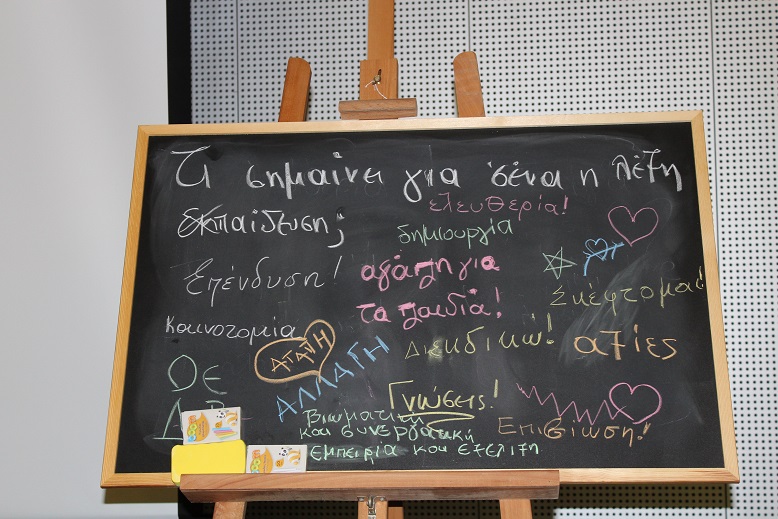 Τι σημαίνει για σένα η λέξη
εκπαίδευση;
ελευθερία!
δημιουργία
Επένδυση!
αγάπη για
τα παιδιά!
Σκέφτομαι!
Καινοτομία
ΑΓΑΠΗ
ΑΛΛΑΓΗ
Διεκδικώ!
αξίες
Γνώσεις!
Επιβίωση!
Βιωματική
και συνεργατική
εμπειρία και εξέλιξη